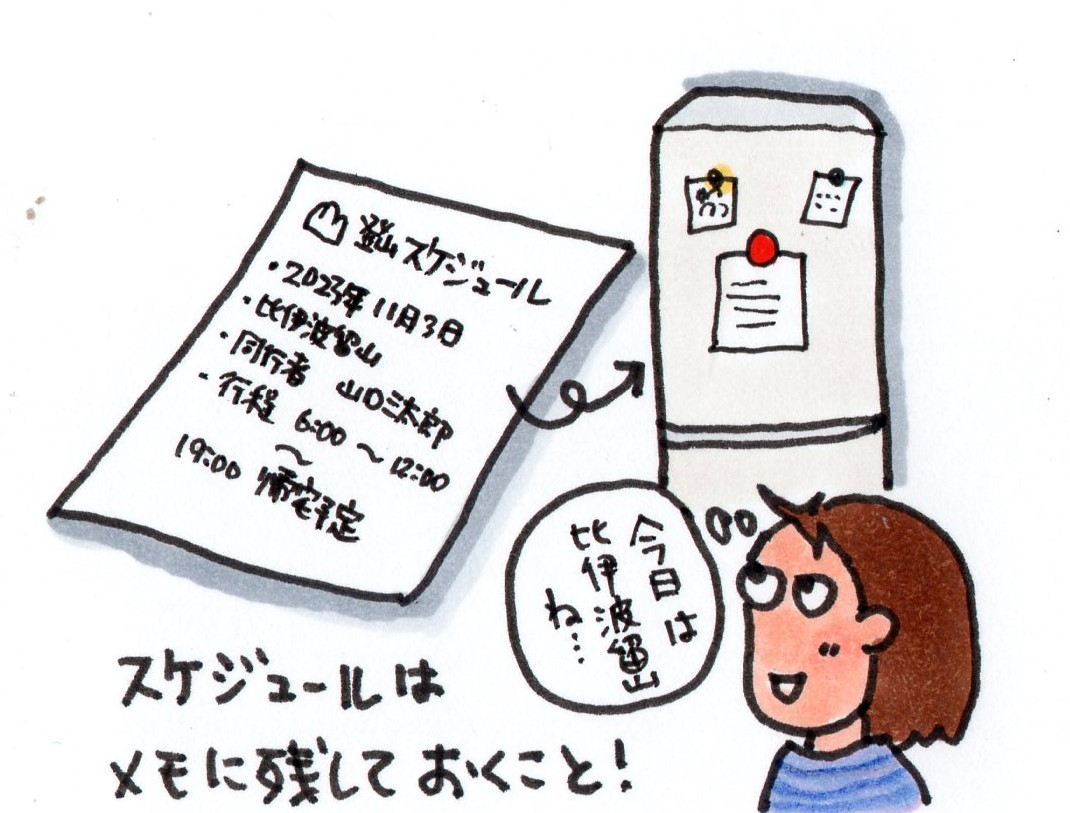 登山スケジュール
・2023年11月3日
・比伊波留山
・同行者 山口三太郎
・行程 6:00 〜 12:00
〜
19:00 帰宅予定
今日は
比伊波留山
ね…
スケジュールは
メモに残しておくこと!